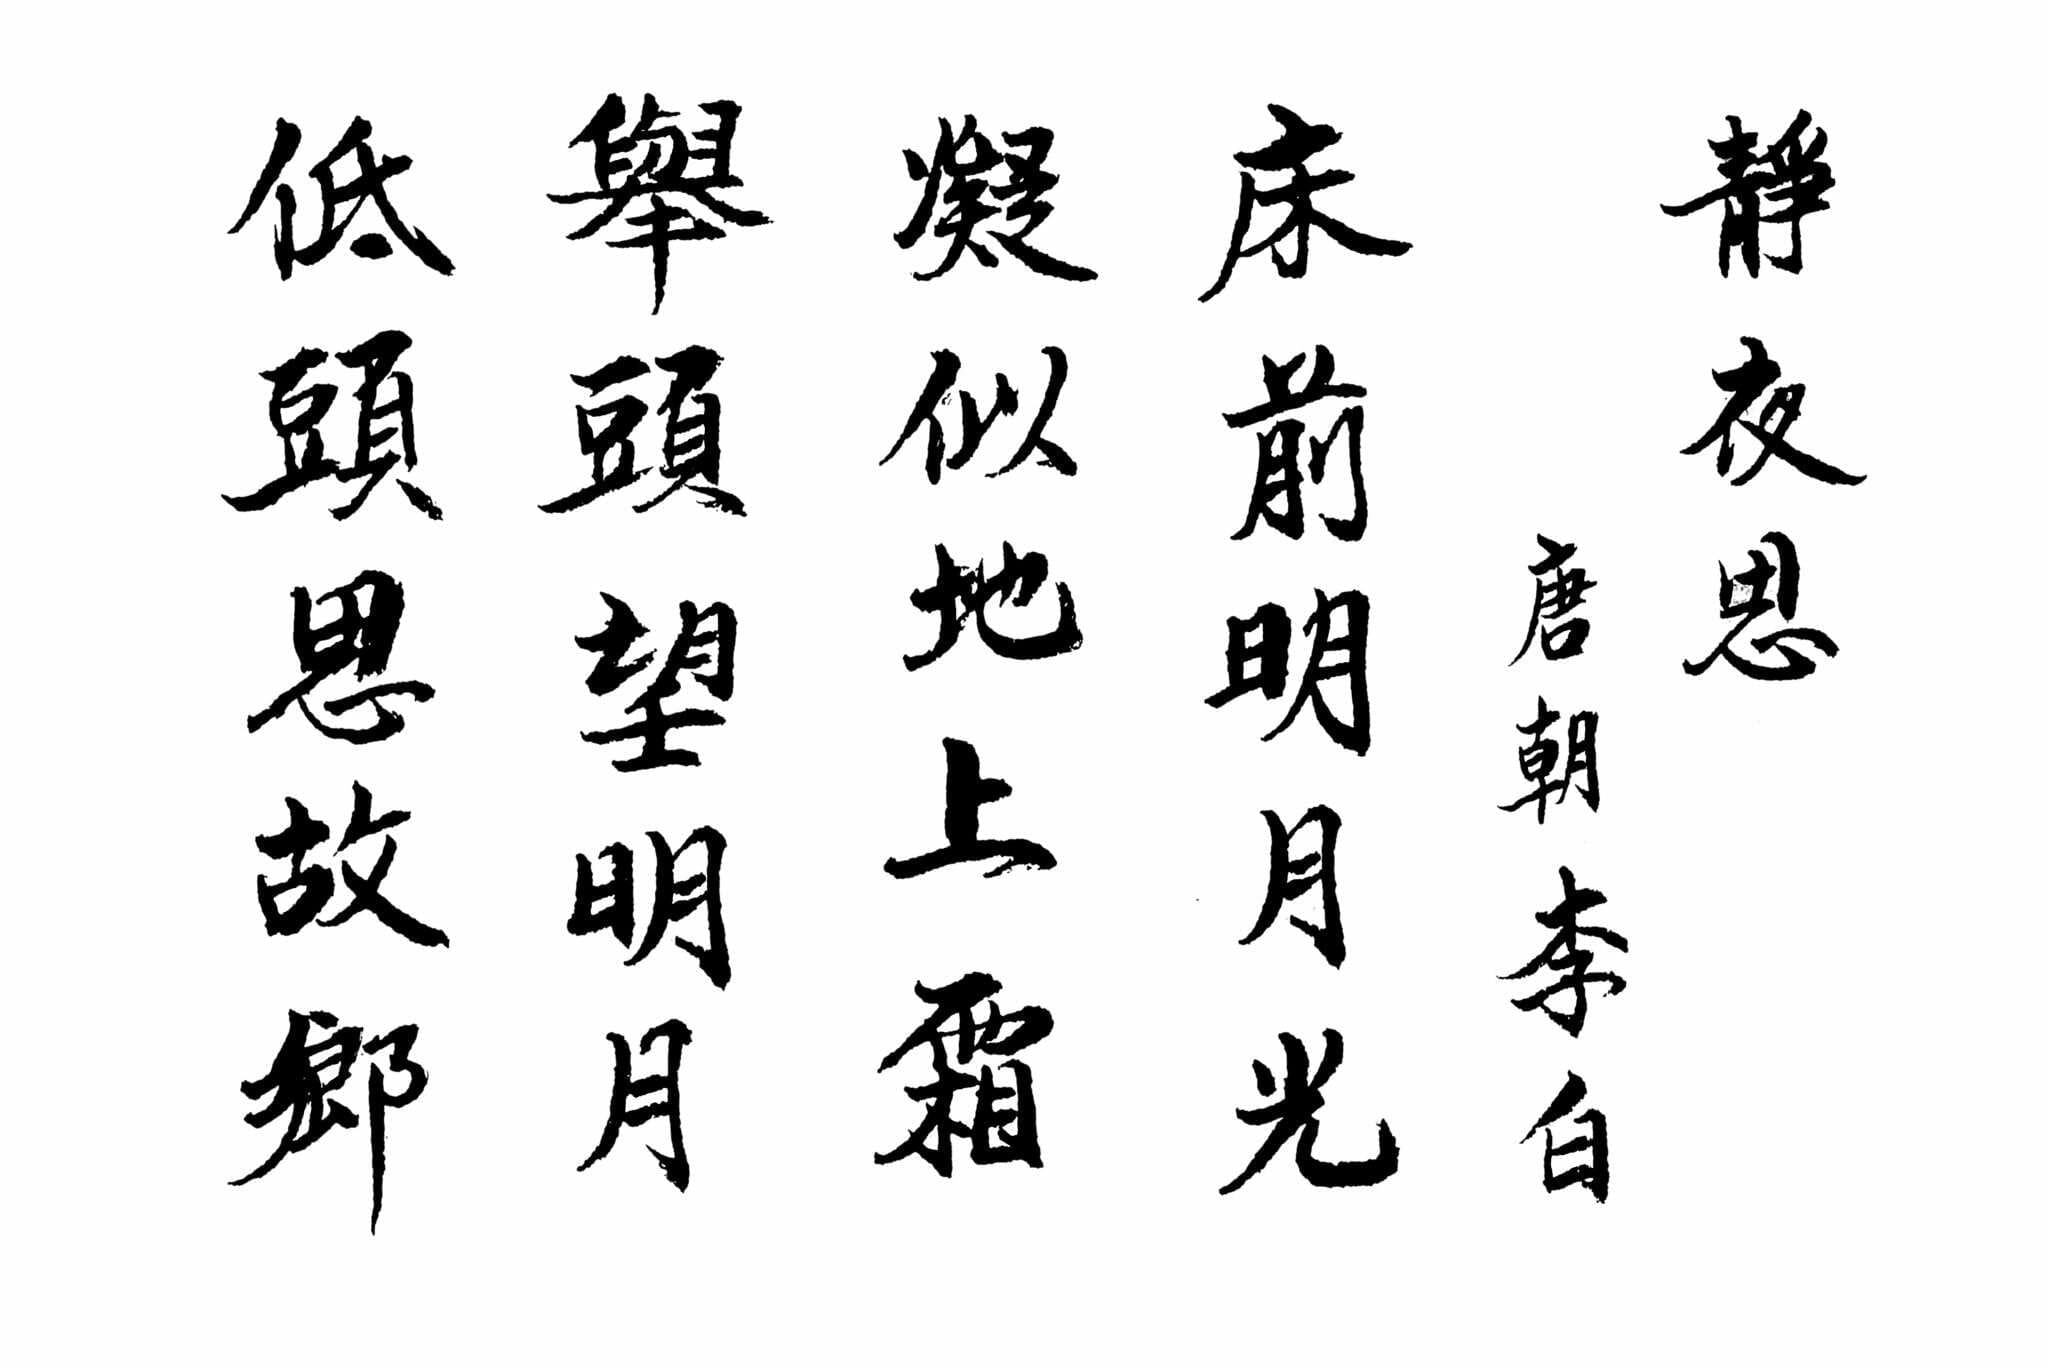 靜夜思
唐朝李白
床前明月光
凝似地上霜
舉頭望明月
低頭思故鄉